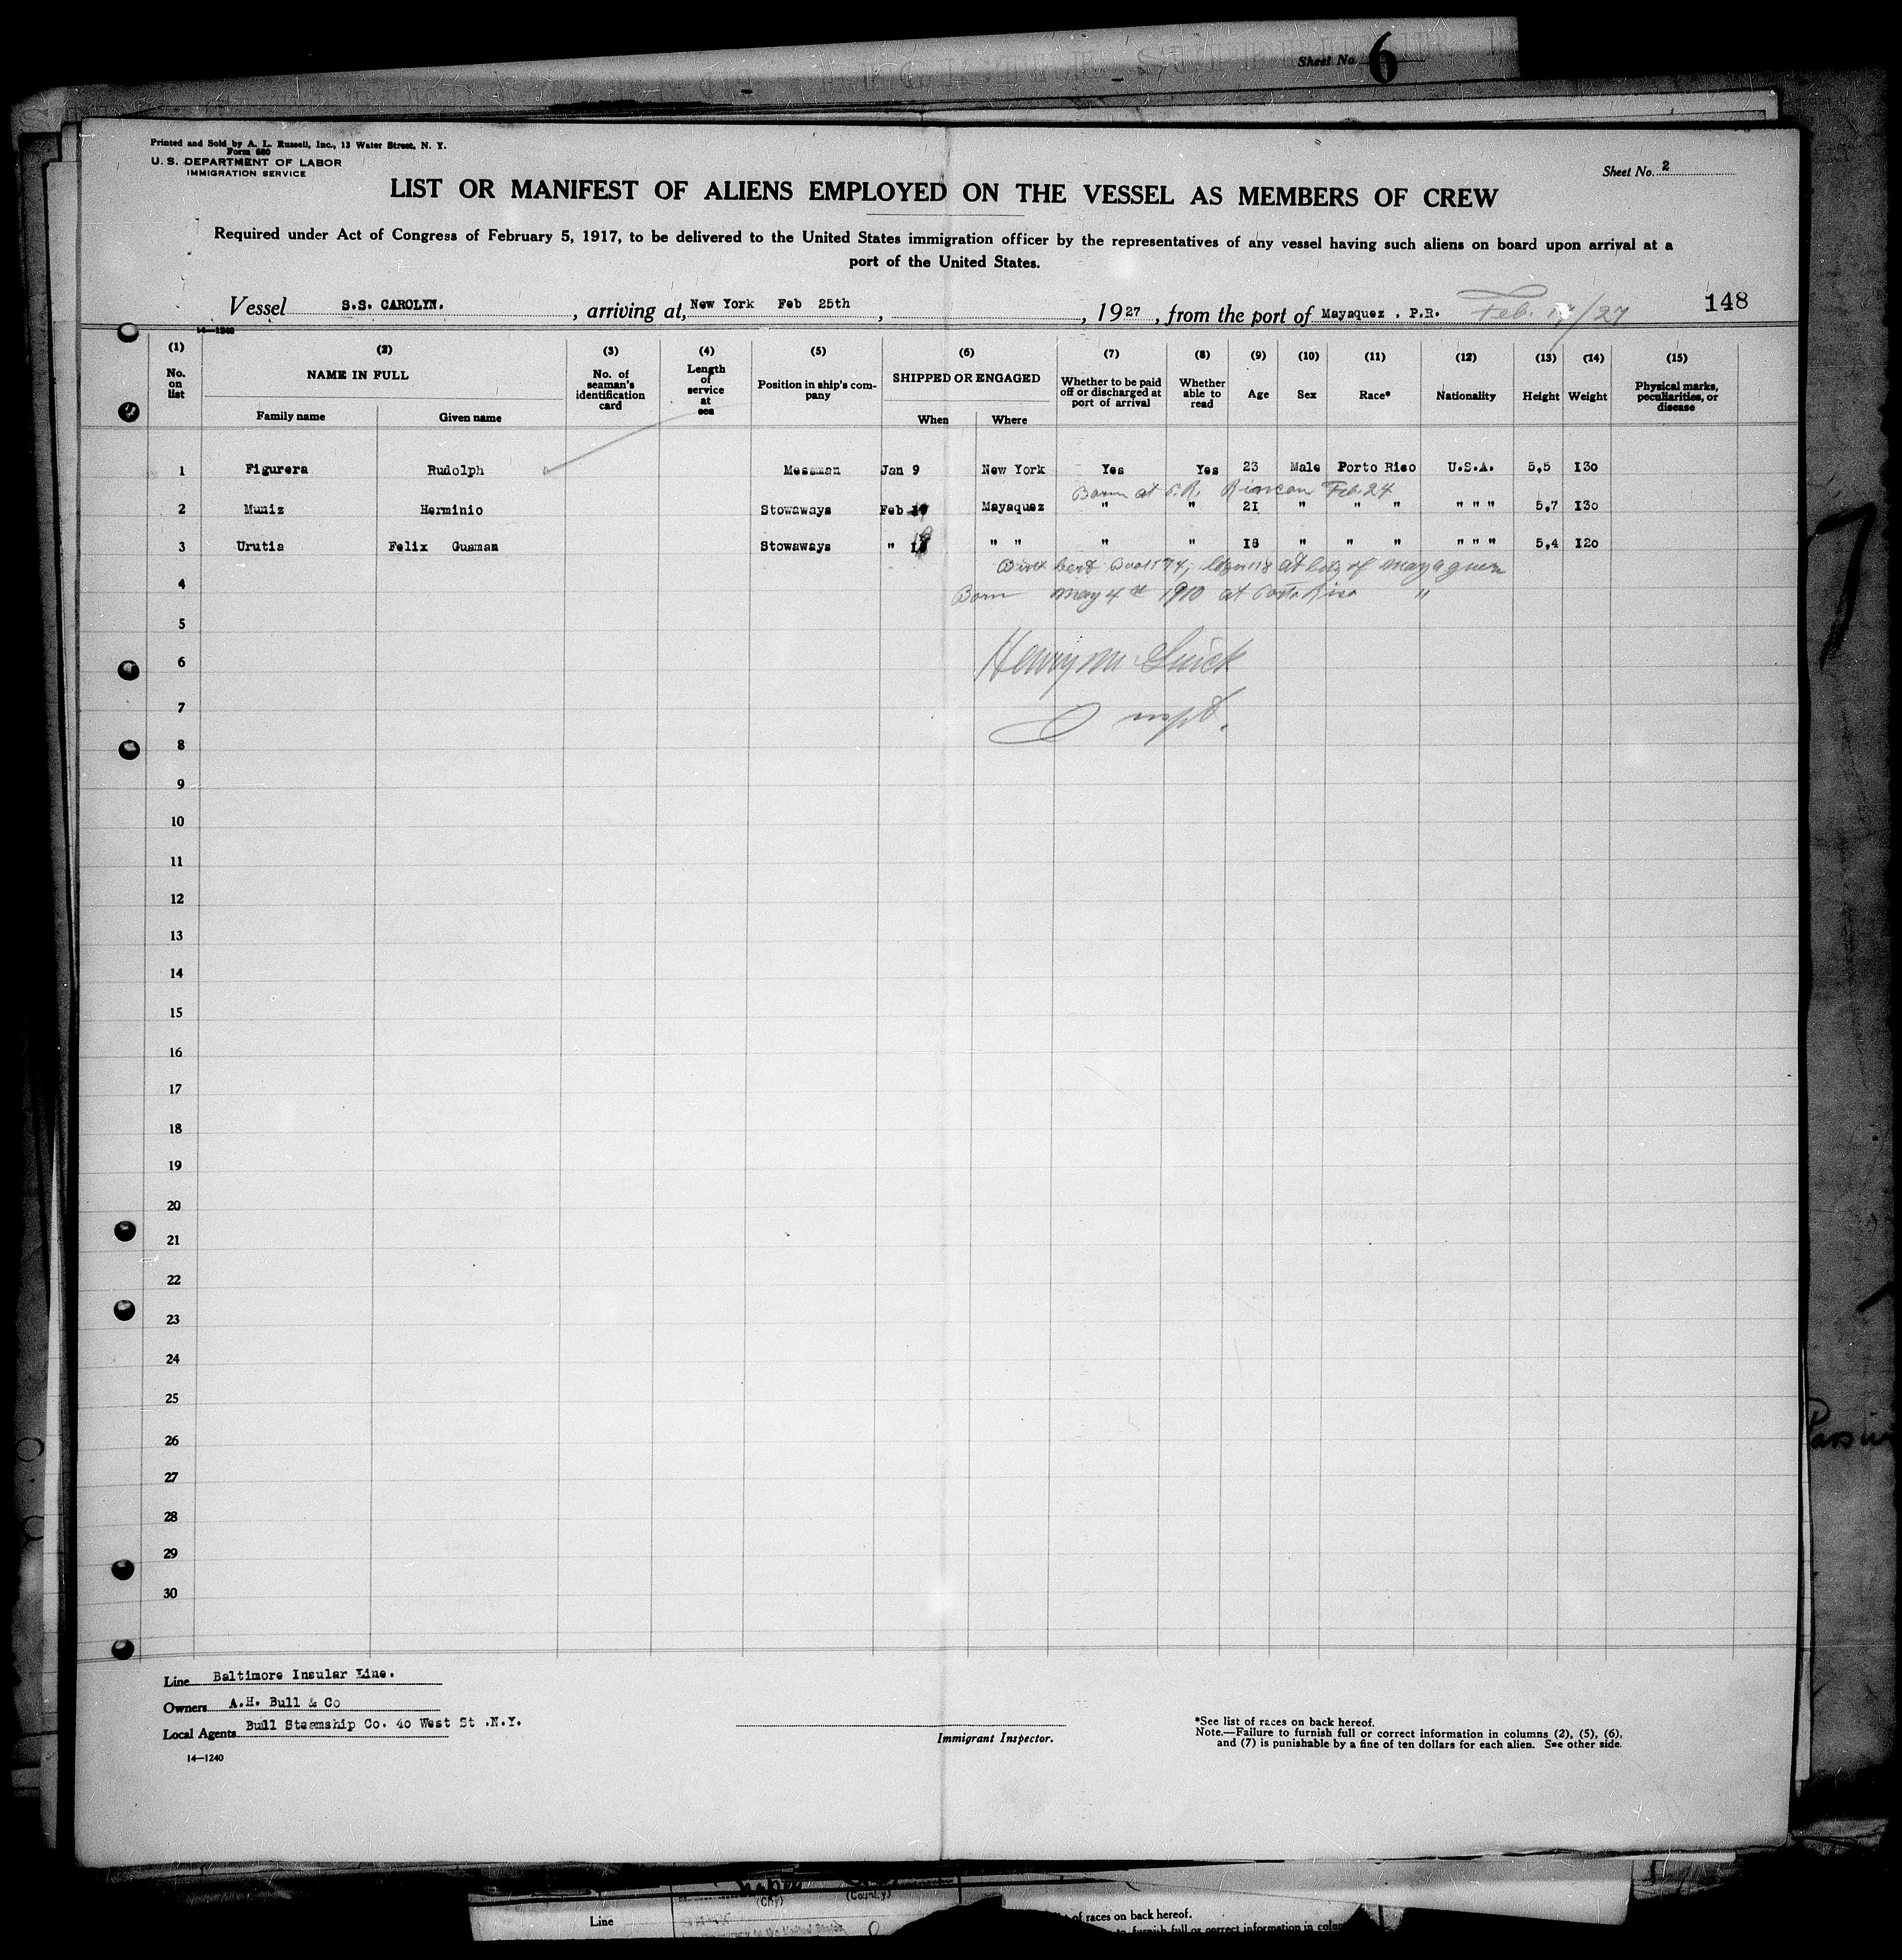 Sheet No. 6
Printed and Sold by A. L. Russell, Inc., 13 Water Street, N. Y.
Form 680
U. S. DEPARTMENT OF LABOR
IMMIGRATION SERVICE
Sheet No. 2
LIST OR MANIFEST OF ALIENS EMPLOYED ON THE VESSEL AS MEMBERS OF CREW
Required under Act of Congress of February 5, 1917, to be delivered to the United States immigration officer by the representatives of any vessel having such aliens on board upon arrival at a
port of the United States.
Vessel S.S. CAROLYN. , arriving at, New York Feb 25th , , 1927 , from the port of Mayaquez . P.R. Feb. /27 148
14—1240
(1) (2) (3) (4) (5) (6) (7) (8) (9) (10) (11) (12) (13) (14) (15)
No. on list NAME IN FULL No. of seaman's identification card Length of service at sea Position in ship's company SHIPPED OR ENGAGED Whether to be paid off or discharged at port of arrival Whether able to read Age Sex Race* Nationality Height Weight Physical marks, peculiarities, or disease
Family name Given name When Where
1 Figurera Rudolph Messman Jan 9 New York Yes Yes 23 Male Porto Rico U.S.A. 5,5 130
Born at P.R. Rincon Feb. 24
2 Muniz Herminio Stowaways Feb Mayaquez " " 21 " " " " " " 5,7 130
3 Urutia Felix Gusman Stowaways " " " " " 18 " " " " " " 5,4 120
at City of Mayaguez
4 Born May 4th 1910 at Porto Rico "
5
6 Henry M.
7 Inspt.
8
9
10
11
12
13
14
15
16
17
18
19
20
21
22
23
24
25
26
27
28
29
30
Line Baltimore Insular Line.
Owners A.H. Bull & Co
Local Agents Bull Steamship Co. 40 West St .N.Y.
14—1240
Immigrant Inspector.
*See list of races on back hereof.
Note.—Failure to furnish full or correct information in columns (2), (5), (6),
and (7) is punishable by a fine of ten dollars for each alien. See other side.
(City) (Country)
Line
of races on back hereof.
furnish full or correct information in colum